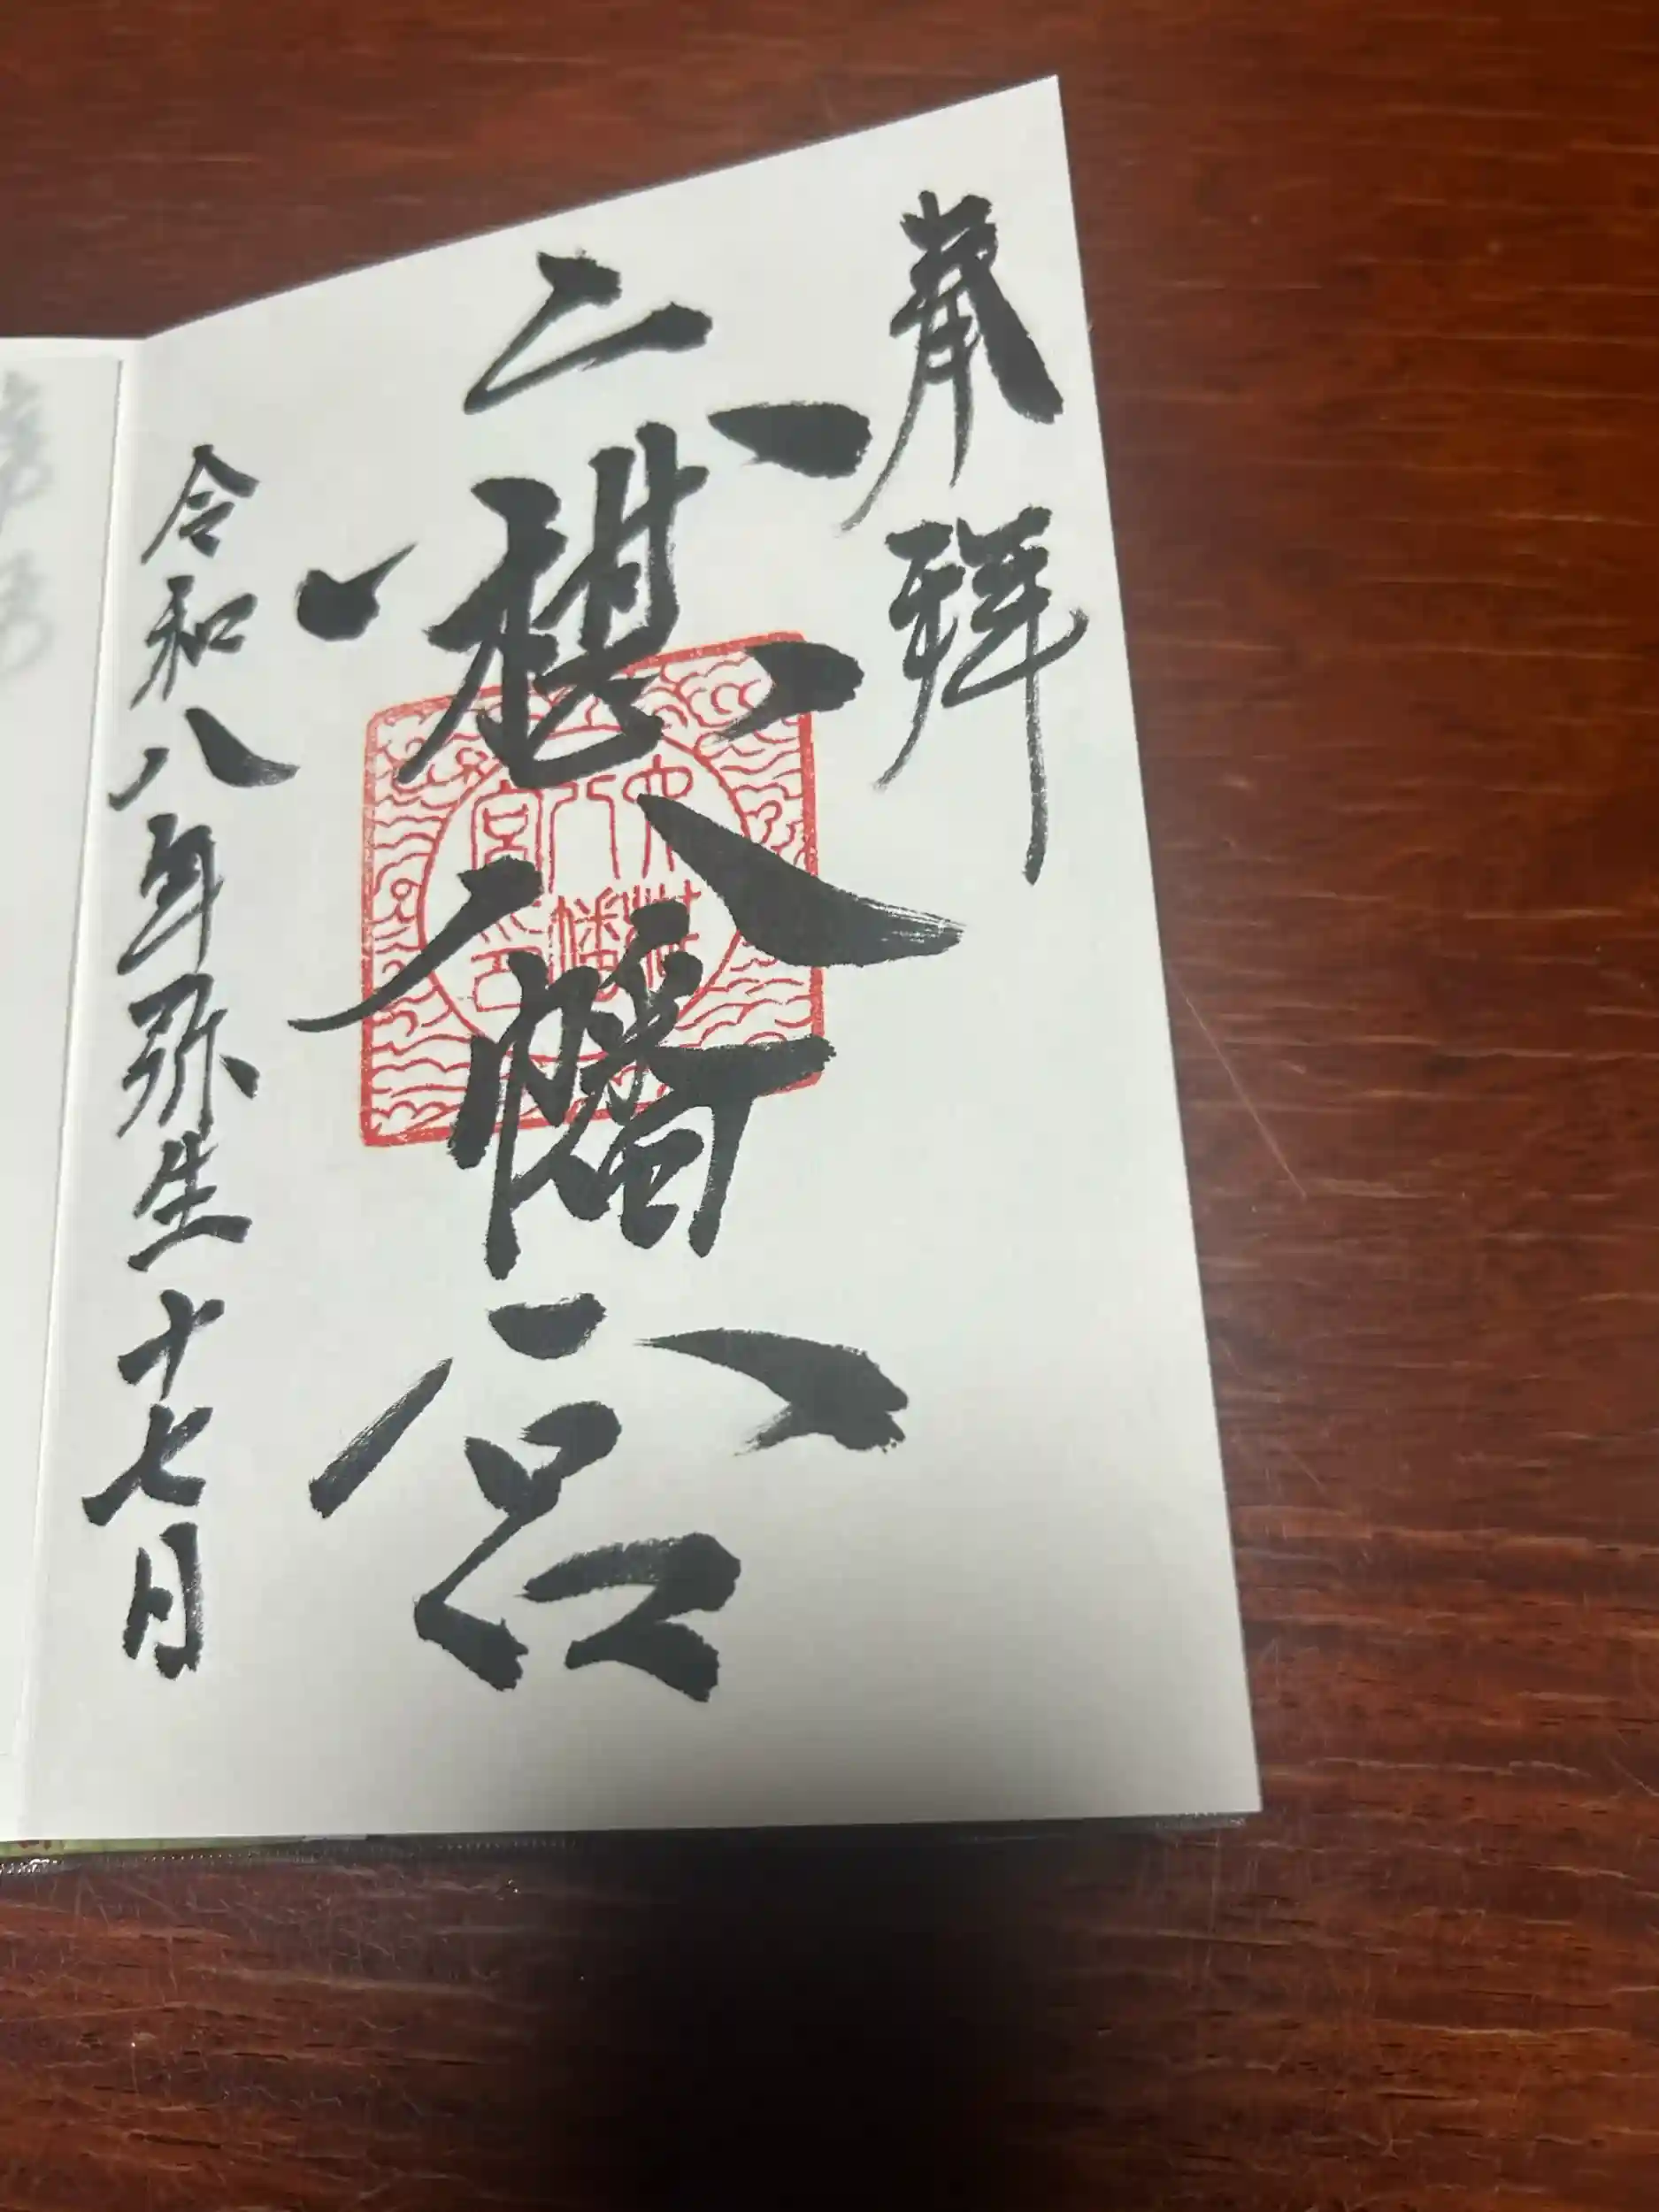 奉拝
六椹八幡宮
六椹
八幡
宮之印
令和八年弥生十七日